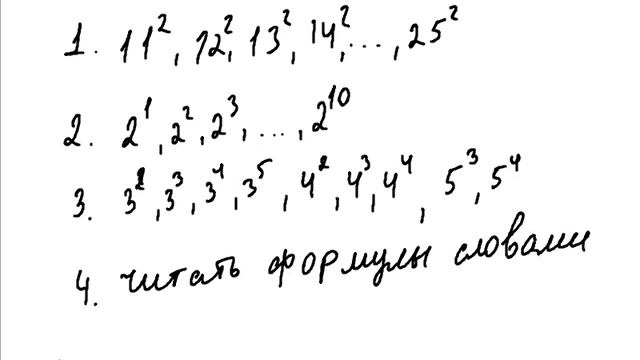 1. 11², 12², 13², 14², ..., 25²
2. 2¹, 2², 2³, ..., 2¹⁰
3. 3², 3³, 3⁴, 3⁵, 4², 4³, 4⁴, 5³, 5⁴
4. читать формулы словами